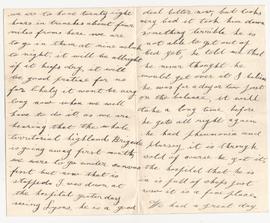 we are to have twenty eight
hours in trenches about four
miles from here we are
to go in them at nine oclock
to night it will be allright
if it keeps dry it will
be good practice for us
for likely it wont be very
long now when we will
have to do it as we are
hearing that the whole
territorial highland Brigade
is going away first
we were to go under canvas
first but now that is
stopped I was down at
the hospital yesterday
seeing Lyons, he is a good
deal better now, but looks
very bad it took him down
something terrible he is
not able to get out of
bed yet, he told me that
he never thought he
would get over it I believe
he was for a day or two just
on the balance, it will
take a long time before
he gets all right again
he had pneumonia and
pleurisy, it is through
cold of course he got it,
the hospital that he is
in is full of chaps just
now it is a fine place
We had a great day